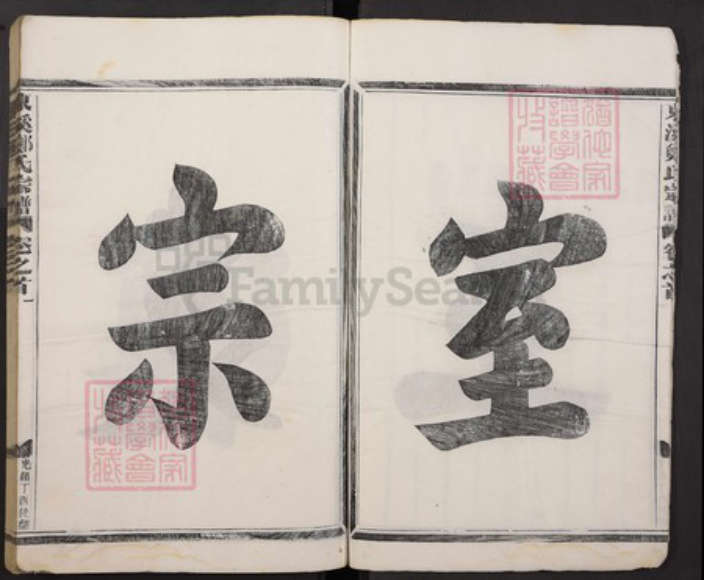 室
宗
東溪鄭氏宗譜 卷之首
東溪鄭氏宗譜 卷之首
光緒丁酉
猶他家譜學會收藏
猶他家譜學會收藏
FamilySearch